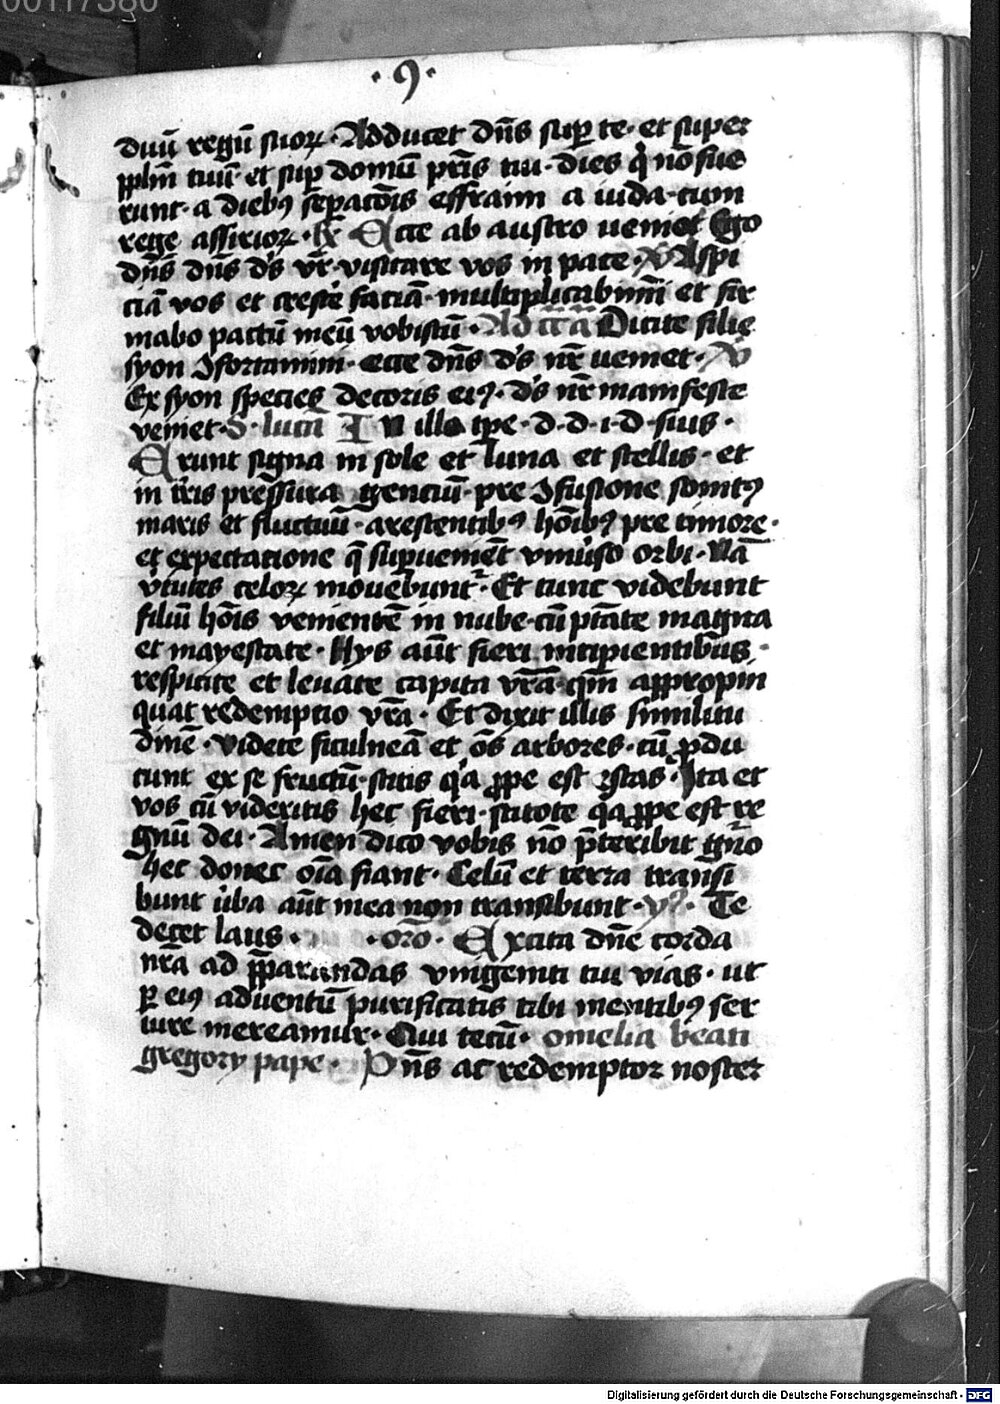 00117380
·9·
duū regū suoꝝ · Adducet dn̄s suꝑ te · et super
pplm̄ tuū · et sup domū pr̄is tui · dies q̄ nō fue
runt · a diebꝰ seꝑatōis effraim a iuda · cum
rege assirioꝝ · ℟ Ecce ab austro ueniet Ego
dn̄s dn̄s d's vr̄ · visitare vos in pace · ℣ Aspi
ciā vos et crescē faciā · multiplicabimī et fir
mabo pactū meū vobiscū · Ad Dicite filie
syon ꝯfortamini · ecce dn̄s d's nr̄ ueniet · ℣
Ex syon species decoris eiꝰ · d's nr̄ manifeste
veniet · S · lucā IN illo tp̄e · d · d · i · d · suis ·
Erunt signa in sole et luna et stellis · et
in tr̄is pressura genciū · pre ꝯfusione sonitꝰ
maris et fluctuū · arescentibꝰ hōibꝰ pre timore ·
et expectatione q̄ supueniēt vniūso orbi · Nā
v̄tutes celoꝝ mouebunt᷑ · Et tunc videbunt
filiū hōis venientē in nube · cū ptāte magna
et mayestate · Hys aūt fieri incipientibus ·
respicite et leuate capita vr̄a · qm̄ appropin
quat redemptio vr̄a · Et dixit illis similitu
dinē · videte ficulneā et oēs arbores · cū ꝓdu
cunt ex se fructū · scitis q'a ꝓpe est estas · Ita et
vos cū videritis hec fieri · scitote q'a ꝓpe est re
gnū dei · Amen dico vobis nō p̄teribit gn̄o
hec donec oīa fiant · Celū et terra transi
bunt ūba aūt mea non transibunt · ℣ · Te
decet laus · · or̄o · Excita dn̄e corda
nr̄a ad p̄parandas vnigeniti tui vias · ut
ꝑ eiꝰ aduentū purificatis tibi mentibꝰ ser
uire mereamur · Qui tecū · omelia beati
gregory pape · Dn̄s ac redemptor noster
Digitalisierung gefördert durch die Deutsche Forschungsgemeinschaft - DFG